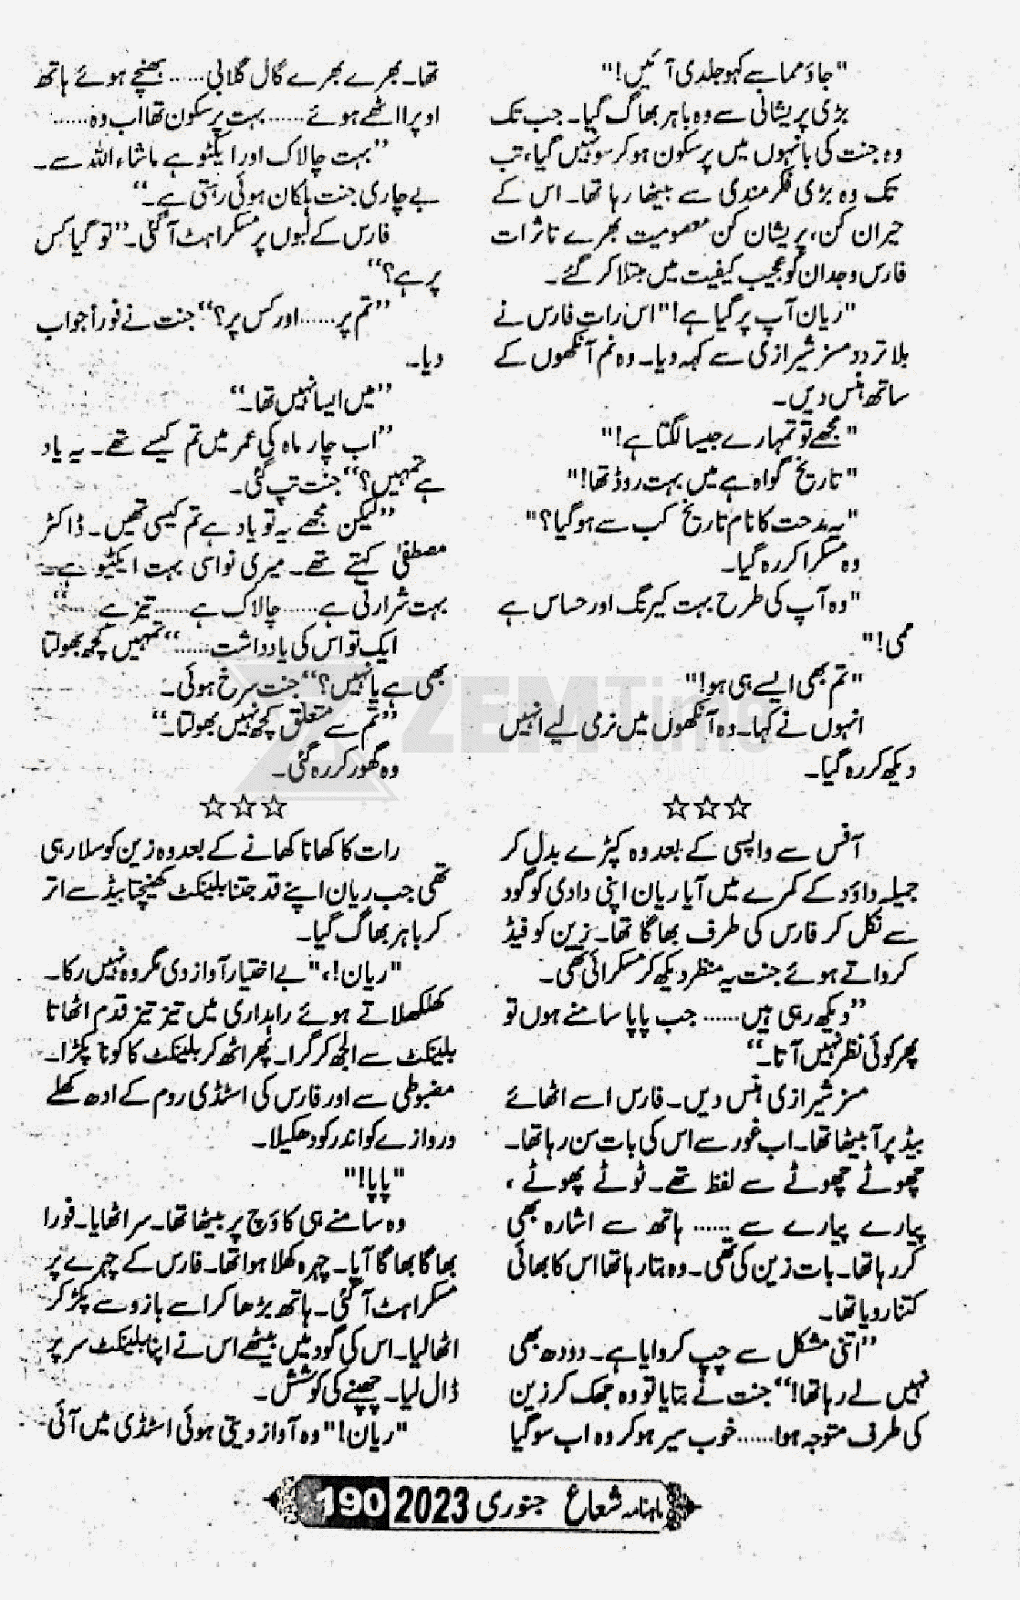 "جاؤ مما سے کہو جلدی آئیں!"
بڑی پریشانی سے وہ باہر بھاگ گیا۔ جب تک
وہ جنت کی بانہوں میں پرسکون ہو کر سو نہیں گیا، تب
تک وہ بڑی فکر مندی سے بیٹھا رہا تھا۔ اس کے
حیران کن، پریشان کن معصومیت بھرے تاثرات
فارس وجدان کو عجیب کیفیت میں مبتلا کر گئے۔
"ریان آپ پر گیا ہے!" اس رات فارس نے
بلا تردد مسز شیرازی سے کہہ دیا۔ وہ نم آنکھوں کے
ساتھ ہنس دیں۔
"مجھے تو تمہارے جیسا لگتا ہے!"
"تاریخ گواہ ہے میں بہت روڈ تھا!"
"یہ مدحت کا نام تاریخ کب سے ہو گیا؟"
وہ مسکرا کر رہ گیا۔
"وہ آپ کی طرح بہت کیرنگ اور حساس ہے
ممی!"
"تم بھی ایسے ہی ہو!"
انہوں نے کہا۔ وہ آنکھوں میں نرمی لیے انہیں
دیکھ کر رہ گیا۔
☆☆☆
آفس سے واپسی کے بعد وہ کپڑے بدل کر
جمیلہ داؤد کے کمرے میں آیا ریان اپنی دادی کو گود
سے نکل کر فارس کی طرف بھاگا تھا۔ زین کو فیڈ
کرواتے ہوئے جنت یہ منظر دیکھ کر مسکرائی تھی۔
"دیکھ رہی ہیں...... جب پاپا سامنے ہوں تو
پھر کوئی نظر نہیں آتا۔"
مسز شیرازی ہنس دیں۔ فارس اسے اٹھائے
بیڈ پر آ بیٹھا تھا۔ اب غور سے اس کی بات سن رہا تھا۔
چھوٹے چھوٹے سے لفظ تھے۔ ٹوٹے پھوٹے،
پیارے پیارے سے ...... ہاتھ سے اشارہ بھی
کر رہا تھا۔ بات زین کی تھی۔ وہ بتا رہا تھا اس کا بھائی
کتنا رویا تھا۔
"اتنی مشکل سے چپ کروایا ہے۔ دودھ بھی
نہیں لے رہا تھا!" جنت نے بتایا تو وہ جھک کر زین
کی طرف متوجہ ہوا...... خوب سیر ہو کر وہ اب سو گیا
تھا۔ بھرے بھرے گال گلابی...... بھنچے ہوئے ہاتھ
اوپر اٹھے ہوئے...... بہت پرسکون تھا اب وہ......
"بہت چالاک اور ایکٹو ہے ماشاء اللہ سے۔
بے چاری جنت ہلکان ہوئی رہتی ہے۔"
فارس کے لبوں پر مسکراہٹ آ گئی۔ "تو گیا کس
پر ہے؟"
"تم پر...... اور کس پر؟" جنت نے فوراً جواب
دیا۔
"میں ایسا نہیں تھا۔"
"اب چار ماہ کی عمر میں تم کیسے تھے۔ یہ یاد
ہے تمہیں؟" جنت تپ گئی۔
"لیکن مجھے یہ تو یاد ہے تم کیسی تھیں۔ ڈاکٹر
مصطفیٰ کہتے تھے۔ میری نواسی بہت ایکٹو ہے۔
بہت شرارتی ہے...... چالاک ہے...... تیز ہے ......"
ایک تو اس کی یادداشت...... "تمہیں کچھ بھولتا
بھی ہے یا نہیں؟" جنت سرخ ہوئی۔
"تم سے متعلق کچھ نہیں بھولتا۔"
وہ گھور کر رہ گئی۔
☆☆☆
رات کا کھانا کھانے کے بعد وہ زین کو سلا رہی
تھی جب ریان اپنے قد جتنا بلینکٹ کھینچتا بیڈ سے اتر
کر باہر بھاگ گیا۔
"ریان!،" بے اختیار آواز دی مگر وہ نہیں رکا۔
کھلکھلاتے ہوئے راہداری میں تیز تیز قدم اٹھاتا
بلینکٹ سے الجھ کر گرا۔ پھر اٹھ کر بلینکٹ کا کونا پکڑا۔
مضبوطی سے اور فارس کی اسٹڈی روم کے ادھ کھلے
دروازے کو اندر کو دھکیلا۔
"پاپا!"
وہ سامنے ہی کاؤچ پر بیٹھا تھا۔ سر اٹھایا۔ فورا
بھاگا بھاگا آیا۔ چہرہ کھلا ہوا تھا۔ فارس کے چہرے پر
مسکراہٹ آ گئی۔ ہاتھ بڑھا کر اسے بازو سے پکڑ کر
اٹھا لیا۔ اس کی گود میں بیٹھے اس نے اپنا بلینکٹ سر پر
ڈال لیا۔ چھپنے کی کوشش۔
"ریان!" وہ آواز دیتی ہوئی اسٹڈی میں آئی
ماہنامہ شعاع جنوری 2023 190
ZEMTime